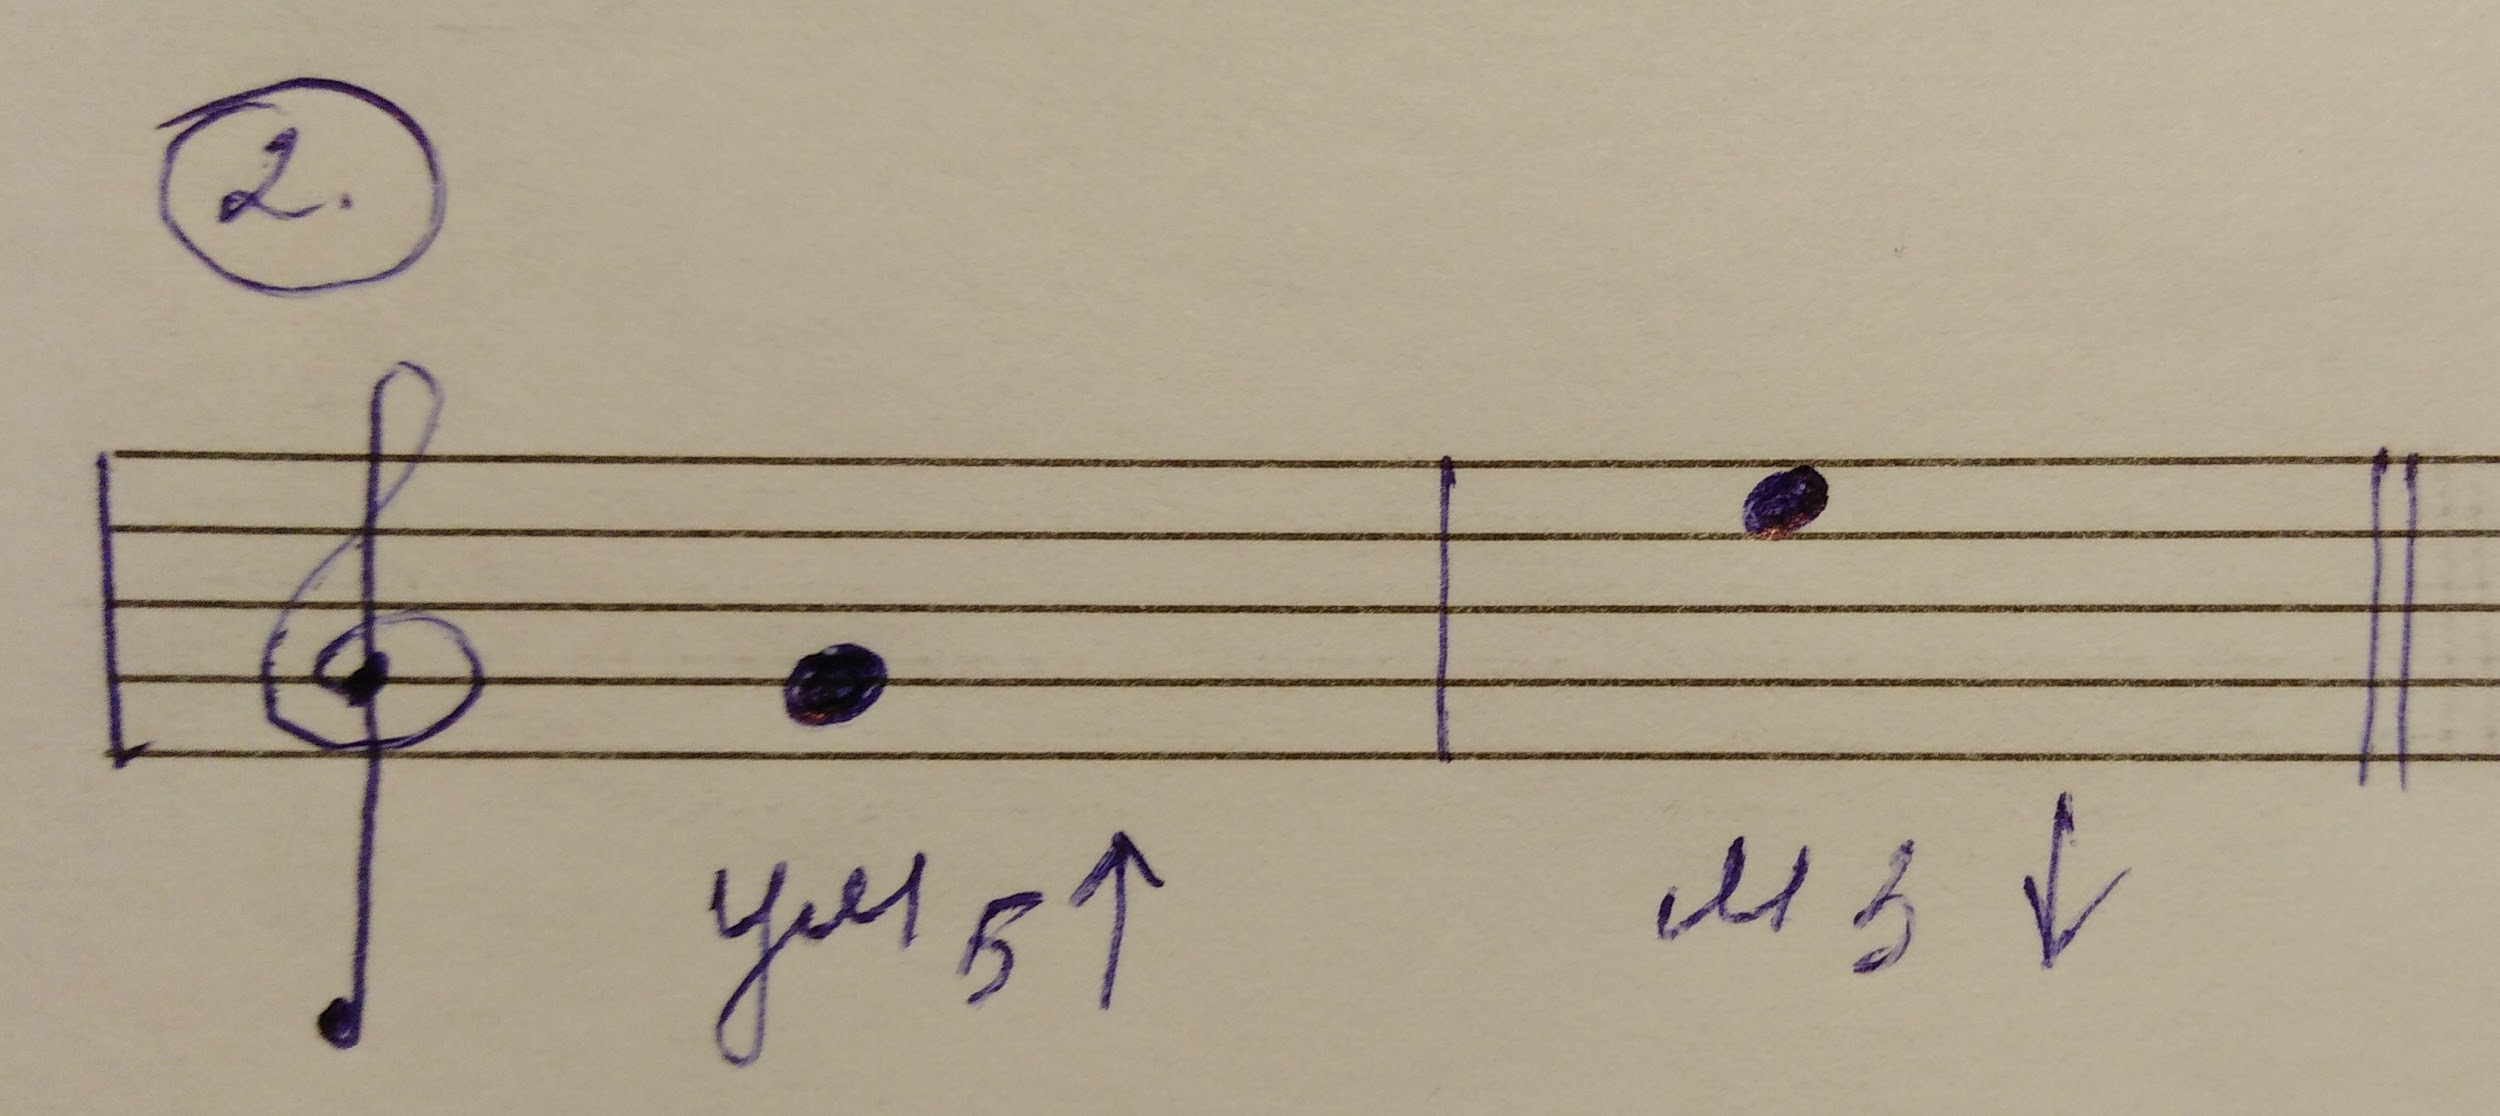 2.
ум 5 ↑ м 3 ↓